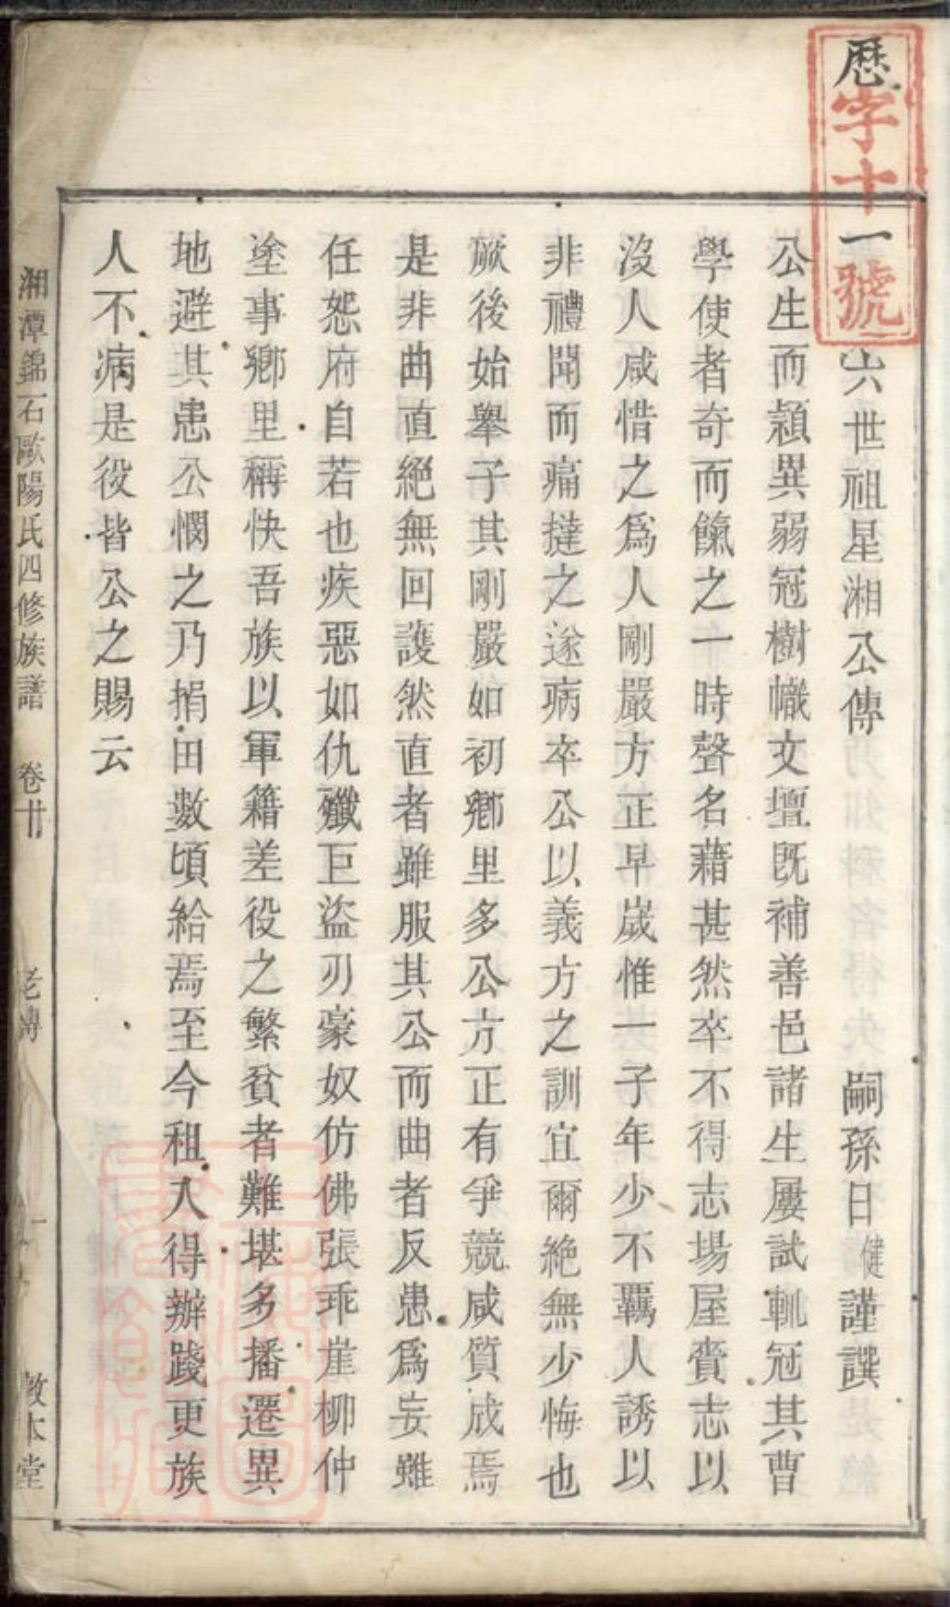 歷字十一號
六世祖星湘公傳 嗣孫日健謹譔
公生而穎異弱冠樹幟文壇既補善邑諸生屢試輒冠其曹
學使者奇而餼之一時聲名藉甚然卒不得志場屋賫志以
沒人咸惜之爲人剛嚴方正早歲惟一子年少不羈人誘以
非禮聞而痛撻之遂病卒公以義方之訓宜爾絶無少悔也
厥後始舉子其剛嚴如初鄉里多公方正有爭競咸質成焉
是非曲直絕無回護然直者雖服其公而曲者反患爲妄雖
任怨府自若也疾惡如仇殲巨盜刃豪奴仿佛張乖崖柳仲
塗事鄉里稱快吾族以軍籍差役之繁貧者難堪多播遷異
地避其患公憫之乃捐田數頃給焉至今租入得辦踐更族
人不病是役皆公之賜云
湘潭錦石歐陽氏四修族譜 卷廿 老傳 一 敦本堂